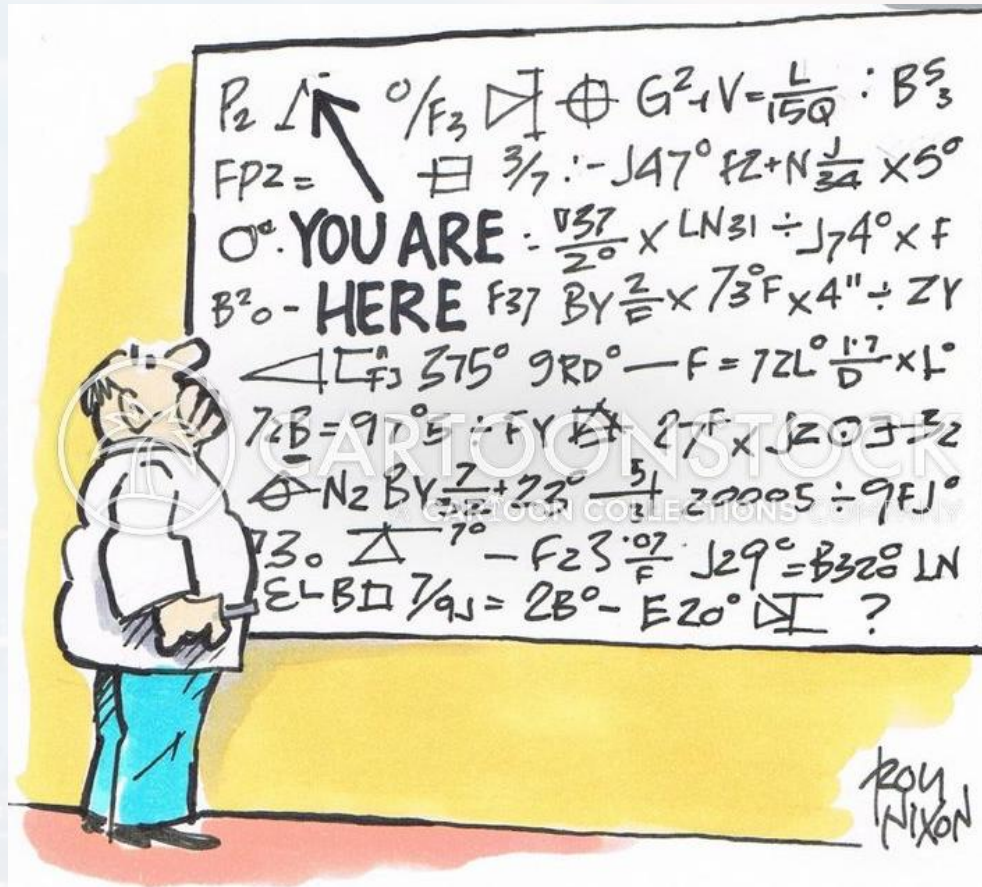 P₂ ⁰/F₃ G²+V=L/15Q : B⁵₃
FPZ= 3/7 :- J47° FZ+N J/34 X5°
YOU ARE : ∇37/2° X LN31 ÷ J74° X F
B²₀- HERE F37 BY 2/F X 73°F X4" ÷ ZY
375° 9RD° — F = 72L° 1.7/D XL°
72B=97°5 ÷ FY 27F X J20
N2 BY 5/31 20005 ÷ 9FJ°
730 7° - F23 .07/F J29°=B320° LN
ELB□ 7/9J= 2B°- E20° ?
CARTOONSTOCK
A CARTOON COLLECTIONS COMPANY
ROY
NIXON